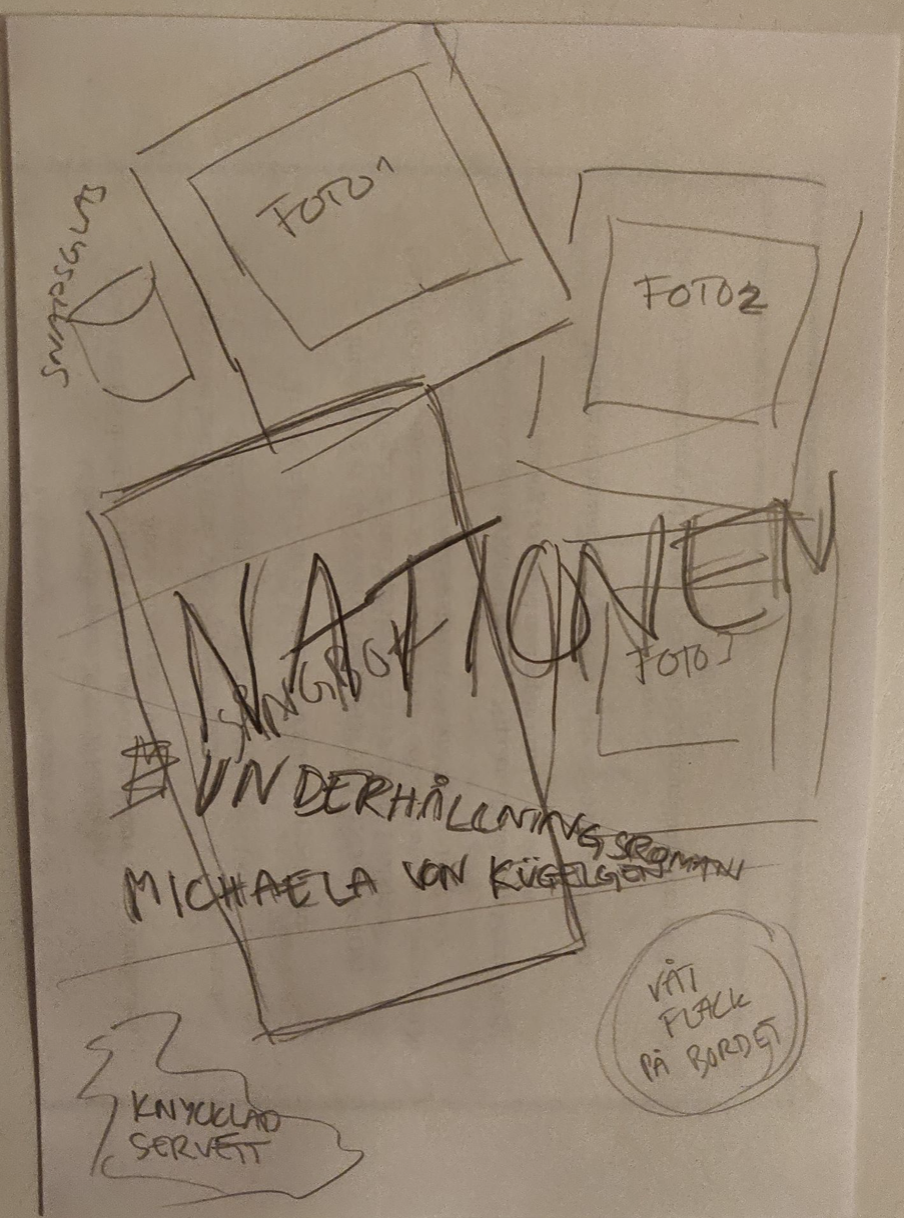 FOTO 1
SNAPSGLAS
FOTO 2
NATIONEN
SÅNGBOK
FOTO 3
UNDERHÅLLNINGSROMAN
MICHAELA VON KÜGELGEN
VÅT
FLÄCK
PÅ BORDET
KNYCKLAD
SERVETT